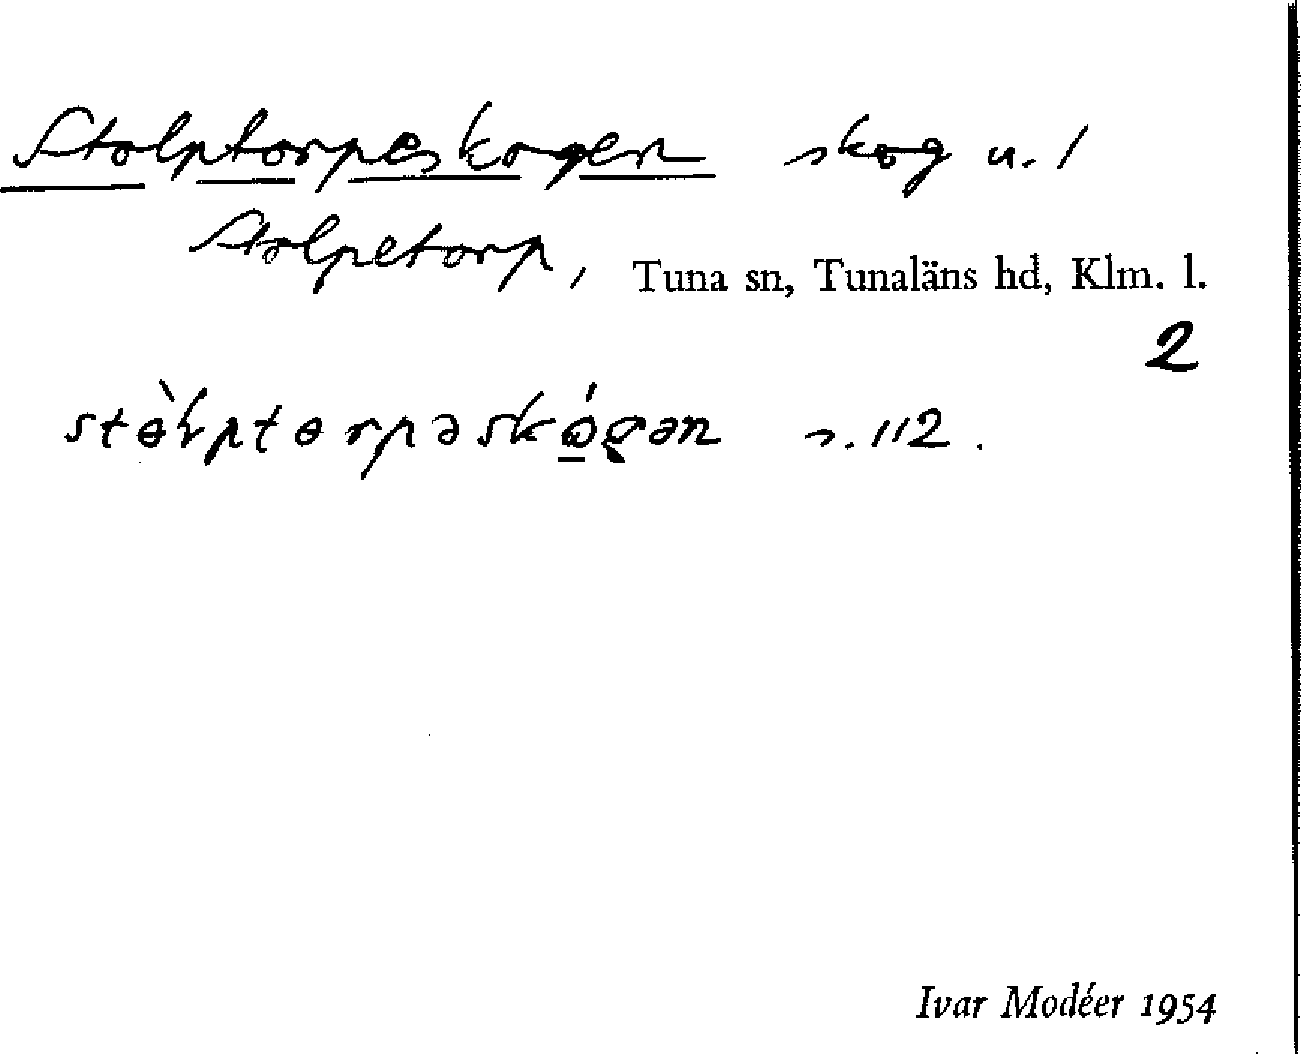 Stolptorpeskogen skog u. 1
Stolpetorp, Tuna sn, Tunaläns hd, Klm. l.
2
s. 112.
Ivar Modéer 1954